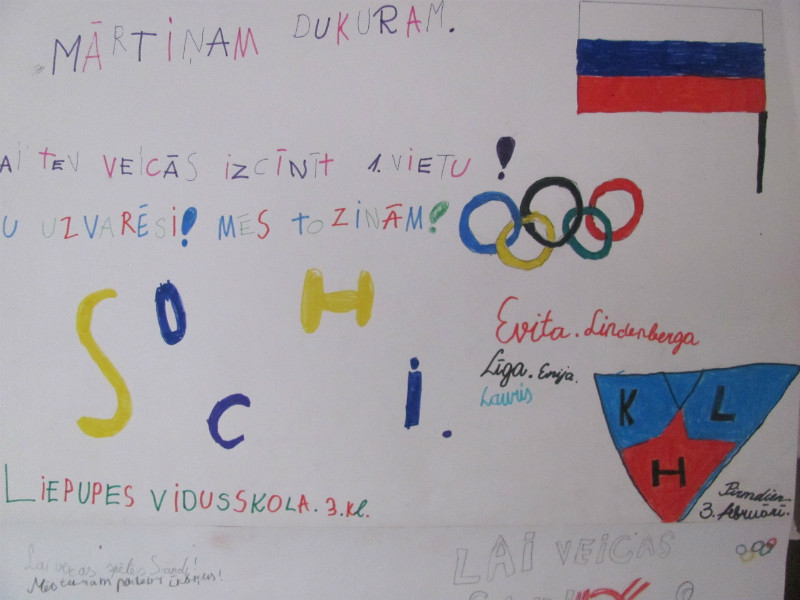 MĀRTIŅAM DUKURAM.
AI TEV VEICĀS IZCĪNĪT 1. VIETU !
U UZVARĒSI! MĒS TO ZINĀM!
SOCHI.
Evita. Lindenberga
Līga. Enija.
Lauris
K L
H
Pirmdien.
3. februārī.
LIEPUPES VIDUSSKOLA. 3. kl.
Lai veicas
LAI VEICAS